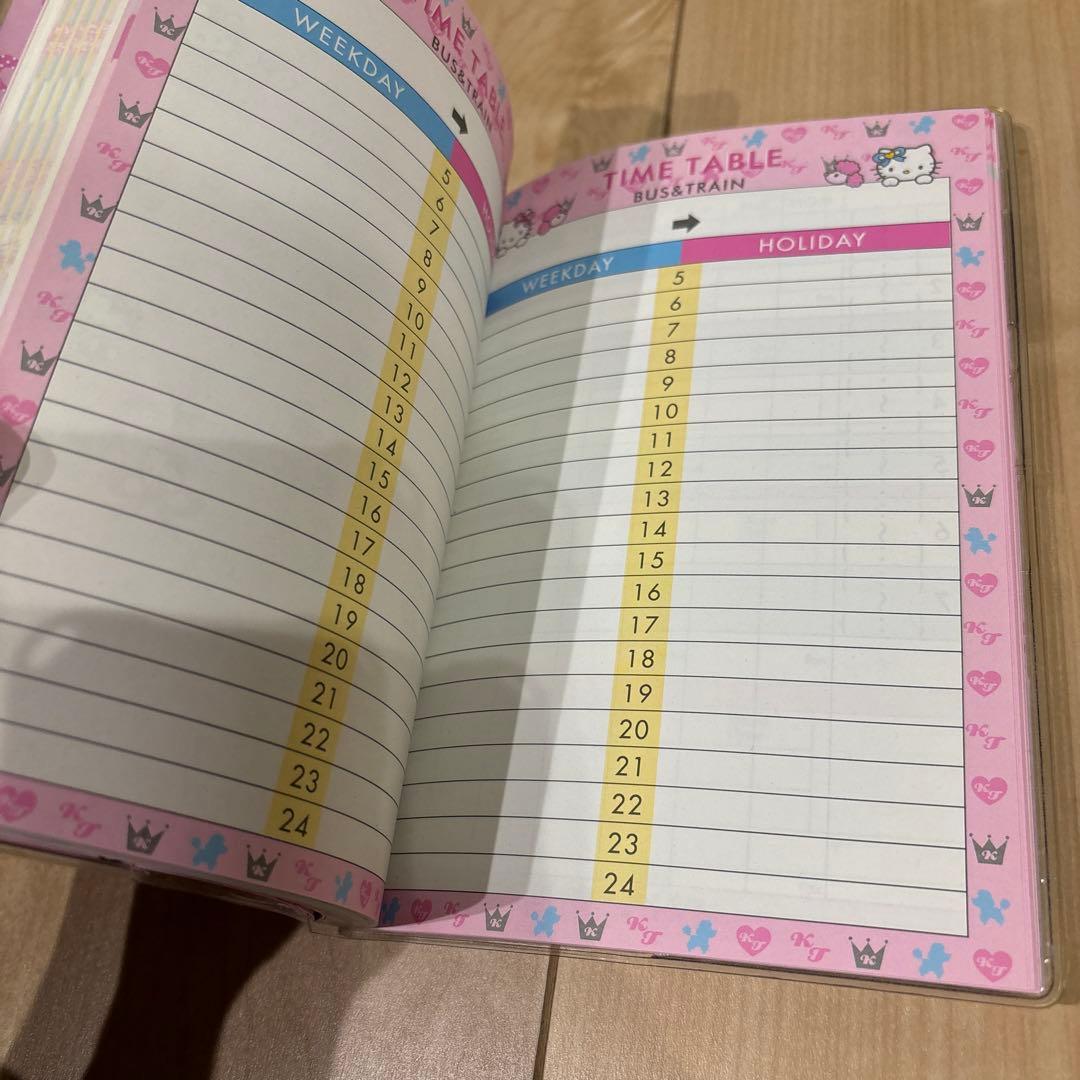 TIME TABLE
BUS&TRAIN
WEEKDAY
5
6
7
8
9
10
11
12
13
14
15
16
17
18
19
20
21
22
23
24
TIME TABLE
BUS&TRAIN
WEEKDAY HOLIDAY
5
6
7
8
9
10
11
12
13
14
15
16
17
18
19
20
21
22
23
24